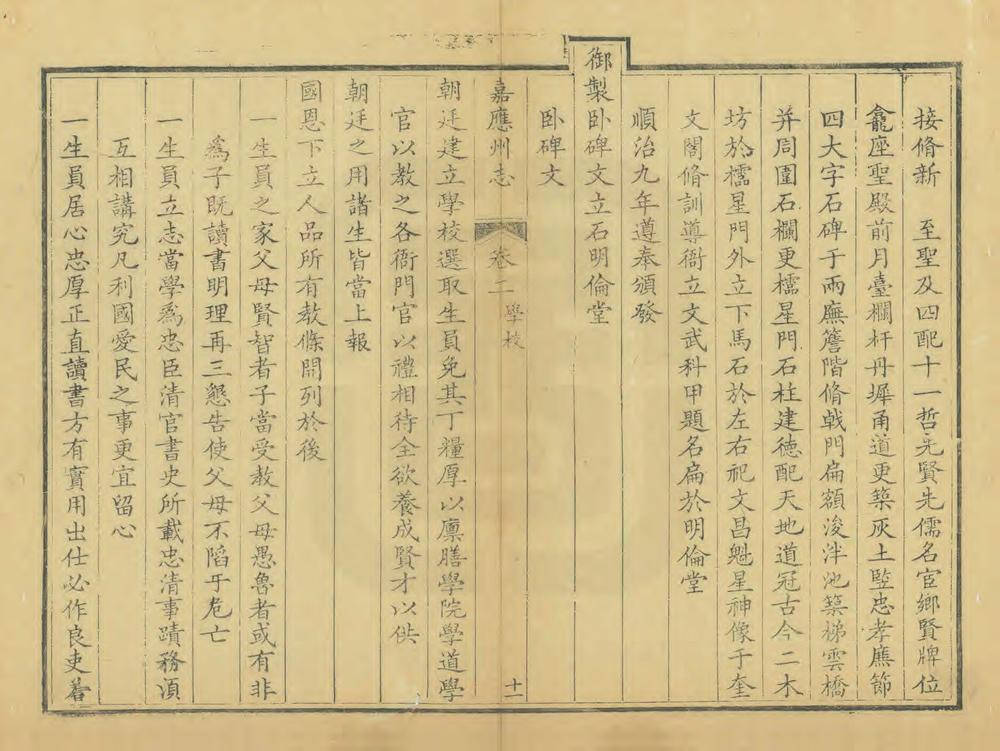 接脩新　至聖及四配十一哲先賢先儒名宦鄉賢牌位
龕座聖殿前月臺欄杆丹墀甬道更築灰土竪忠孝廉節
四大字石碑于兩廡簷階脩戟門扁額浚泮池築梯雲橋
并周圍石欄更欞星門石柱建德配天地道冠古今二木
坊於欞星門外立下馬石於左右祀文昌魁星神像于奎
文閣脩訓導衙立文武科甲題名扁於明倫堂
順治九年遵奉頒發
御製卧碑文立石明倫堂
卧碑文
嘉應州志　卷二　學校　十一
朝廷建立學校選取生員免其丁糧厚以廩膳學院學道學
官以教之各衙門官以禮相待全欲養成賢才以供
朝廷之用諸生皆當上報
國恩下立人品所有教條開列於後
一生員之家父母賢智者子當受教父母愚魯者或有非
爲子既讀書明理再三懇告使父母不陷于危亡
一生員立志當學爲忠臣清官書史所載忠清事蹟務須
互相講究凡利國愛民之事更宜留心
一生員居心忠厚正直讀書方有實用出仕必作良吏若